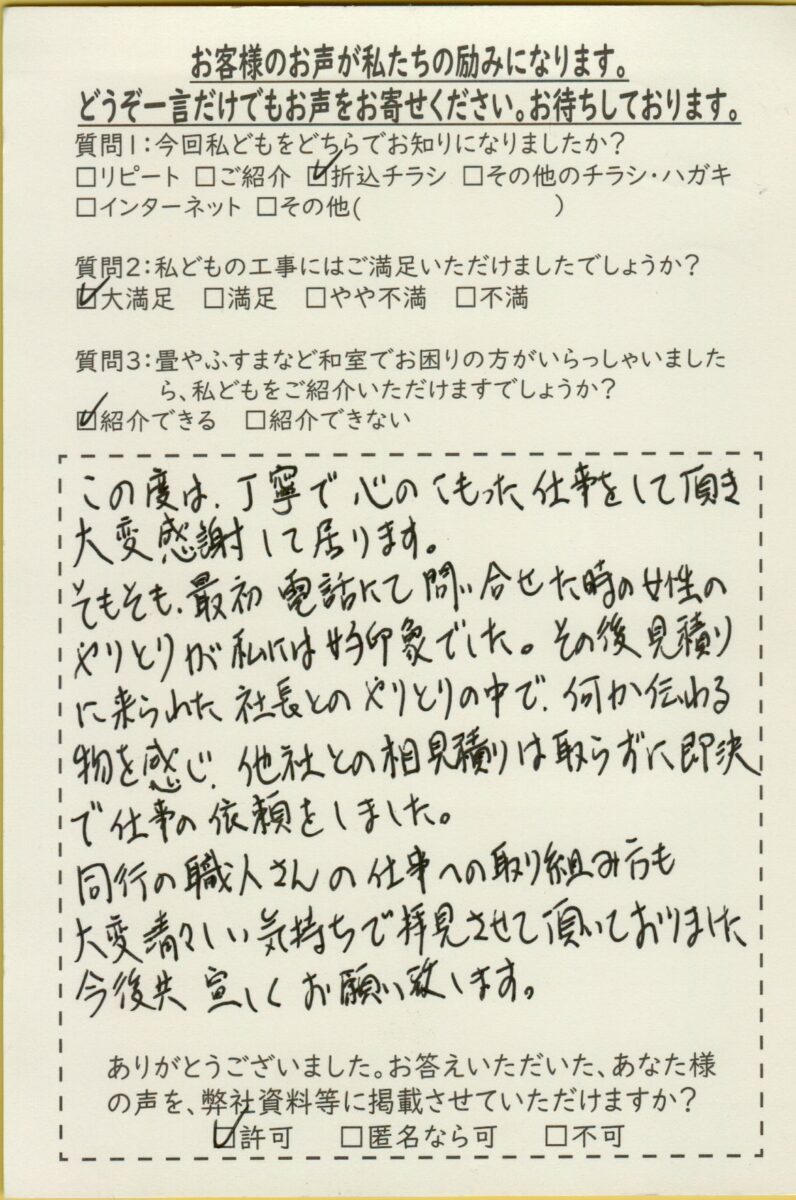 お客様のお声が私たちの励みになります。
どうぞ一言だけでもお声をお寄せください。お待ちしております。
質問1:今回私どもをどちらでお知りになりましたか?
□リピート □ご紹介 ☑折込チラシ □その他のチラシ・ハガキ
□インターネット □その他(　　　　　　　　)
質問2:私どもの工事にはご満足いただけましたでしょうか?
☑大満足 □満足 □やや不満 □不満
質問3:畳やふすまなど和室でお困りの方がいらっしゃいました
ら、私どもをご紹介いただけますでしょうか?
☑紹介できる □紹介できない
この度は、丁寧で心のこもった仕事をして頂き
大変感謝して居ります。
そもそも、最初電話にて問い合せた時の女性の
やりとりが私には好印象でした。その後見積り
に来られた社長とのやりとりの中で、何か伝わる
物を感じ、他社との相見積りは取らずに即決
で仕事の依頼をしました。
同行の職人さんの仕事への取り組み方も
大変清々しい気持ちで拝見させて頂いておりました
今後共宜しくお願い致します。
ありがとうございました。お答えいただいた、あなた様
の声を、弊社資料等に掲載させていただけますか?
☑許可 □匿名なら可 □不可